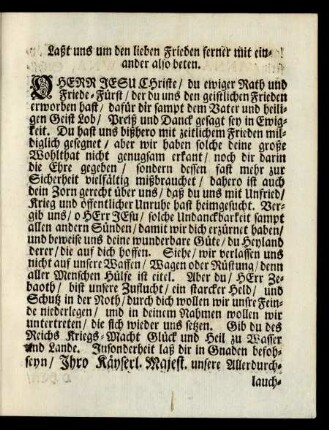 Laßt uns um den lieben Frieden ferner mit ein-
ander also beten.
O HERR JESU CHriste/ du ewiger Rath und
Friede-Fürst/ der du uns den geistlichen Frieden
erworben hast/ dafür dir sampt dem Vater und heili-
gen Geist Lob/ Preiß und Danck gesagt sey in Ewig-
keit. Du hast uns bißhero mit zeitlichem Frieden mil-
diglich gesegnet/ aber wir haben solche deine große
Wohlthat nicht genugsam erkant/ noch dir darin
die Ehre gegeben/ sondern dessen fast mehr zur
Sicherheit vielfältig mißbrauchet/ dahero ist auch
dein Zorn gerecht über uns/ daß du uns mit Unfried/
Krieg und öffentlicher Unruhe hast heimgesucht. Ver-
gib uns/ o HErr JEsu/ solche Undanckbarkeit sampt
allen andern Sünden/ damit wir dich erzürnet haben/
und beweise uns deine wunderbare Güte/ du Heyland
derer/ die auf dich hoffen. Siehe/ wir verlassen uns
nicht auf unsere Waffen/ Wagen oder Rüstung/ denn
aller Menschen Hülfe ist eitel. Aber du/ HErr Ze-
baoth/ bist unsere Zuflucht/ ein starcker Held/ und
Schutz in der Noth/ durch dich wollen wir unsre Fein-
de niederlegen/ und in deinem Nahmen wollen wir
untertreten/ die sich wieder uns setzen. Gib du des
Reichs Kriegs-Macht Glück und Heil zu Wasser
und Lande. Insonderheit laß dir in Gnaden befoh-
seyn/ Ihro Käyserl. Majest. unsere Allerdurch-
lauch-